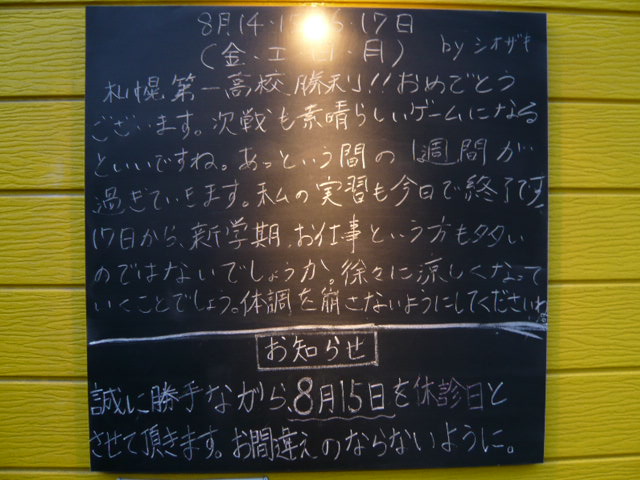 8月14・1 ・17日
(金・土・日・月) by シオザキ
札幌第一高校勝利!!おめでとう
ございます。次戦も素晴らしいゲームになる
といいですね。あっという間の1週間が
過ぎていきます。私の実習も今日で終了です。
17日から、新学期、お仕事という方も多い
のではないでしょうか。徐々に涼しくなって
いくことでしょう。体調を崩さないようにしてくださいね。
お知らせ
誠に勝手ながら、8月15日を休診日と
させて頂きます。お間違えのならないように。